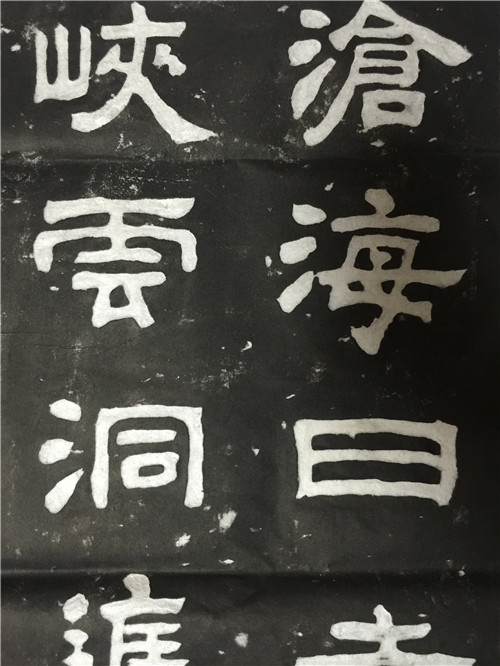 滄海日
峽雲洞